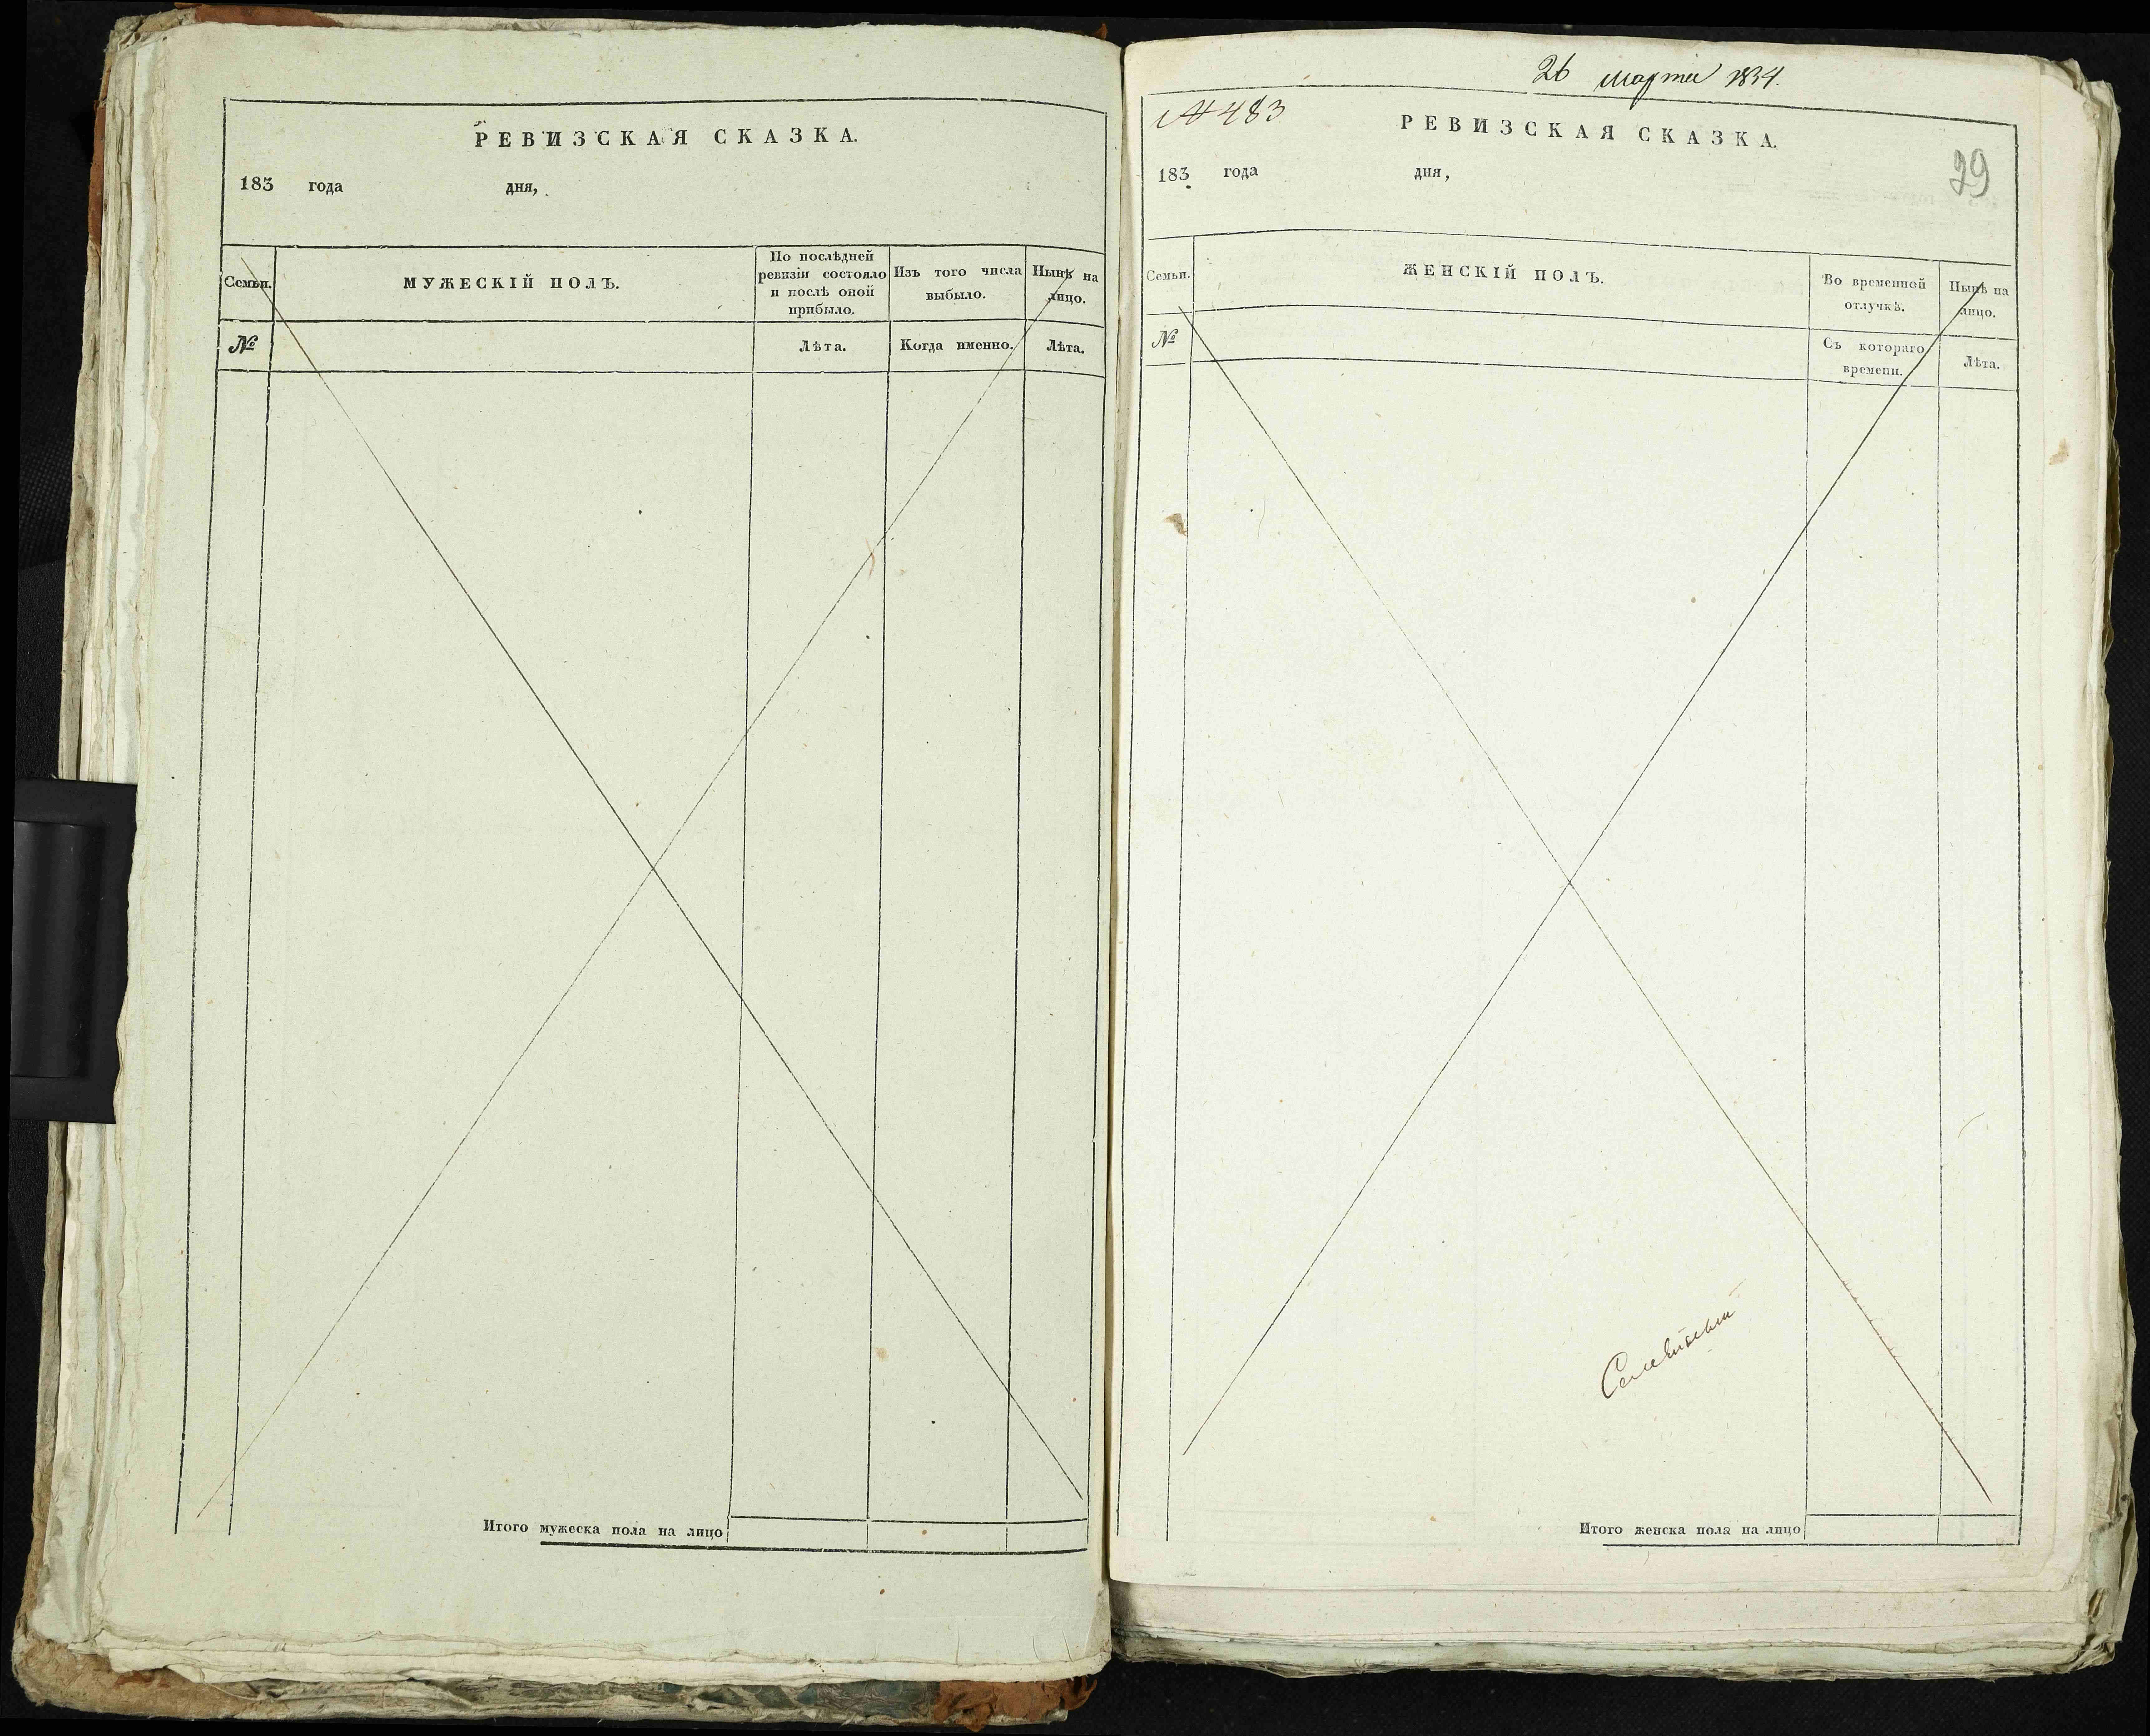 РЕВИЗСКАЯ СКАЗКА.
183 года дня,
Семьи.
МУЖЕСКІЙ ПОЛЪ.
По послѣдней
ревизіи состояло
и послѣ оной
прибыло.
Изъ того числа
выбыло.
Нынѣ на
лицо.
№
Лѣта.
Когда именно.
Лѣта.
Итого мужеска пола на лицо
26 марта 1834.
№ 483
РЕВИЗСКАЯ СКАЗКА.
29
183 года дня,
Семьи.
ЖЕНСКІЙ ПОЛЪ.
Во временной
отлучкѣ.
Нынѣ на
лицо.
№
Съ котораго
времени.
Лѣта.
Итого женска пола на лицо